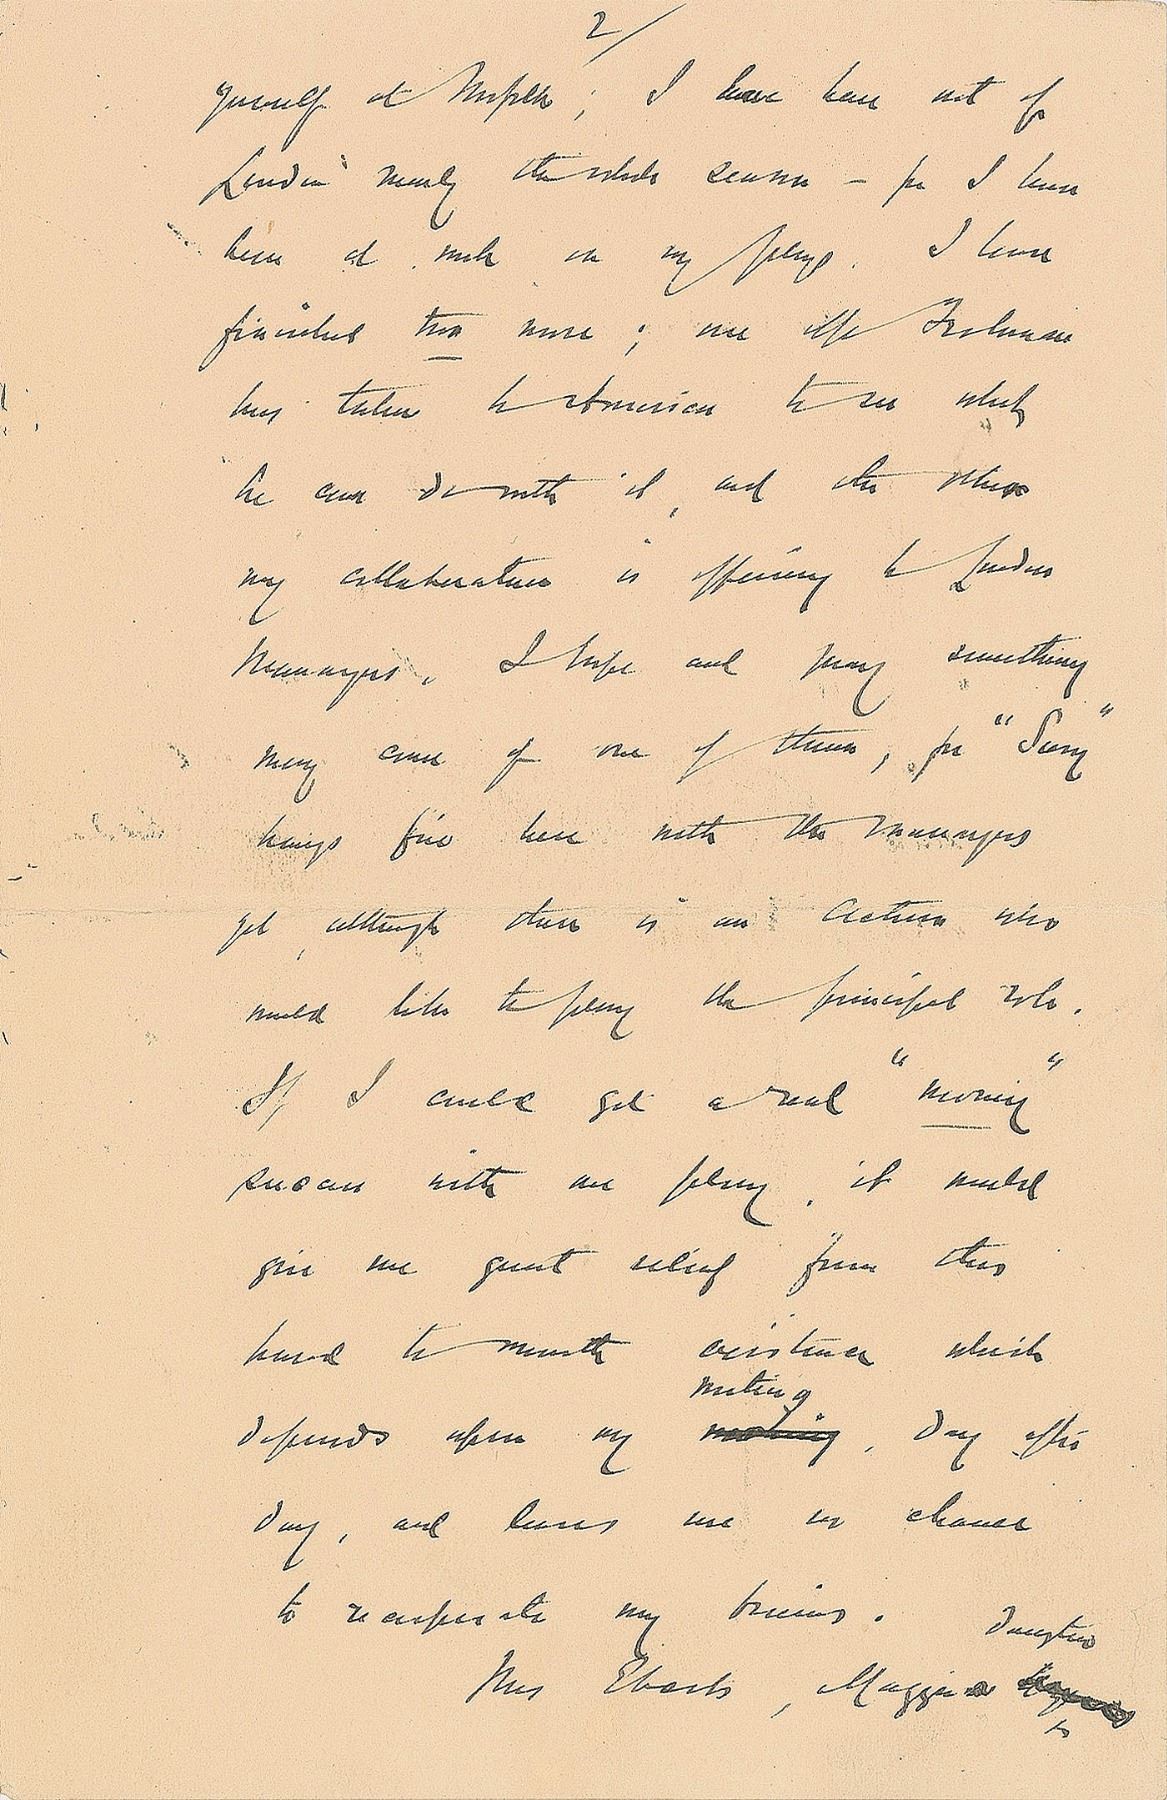 2/
yourself at Norfolk; I have been out of
London nearly the whole season – for I have
been at work on my plays. I have
finished two more; one Mr Frohman
has taken to America to see what
he can do with it, and the other
my collaborateur is offering to London
Managers. I hope and pray something
may come of one of them, for "Suny"
hangs fire here with the managers
yet, although there is an actress who
would like to play the principal role.
If I could get a real "money"
success with one play, it would
give me great relief from this
hand to mouth existence which
writing
depends upon my, day after
day, and leaves me no chance
to recuperate my brains.
Daughter
Mrs Eberts, Maggie's